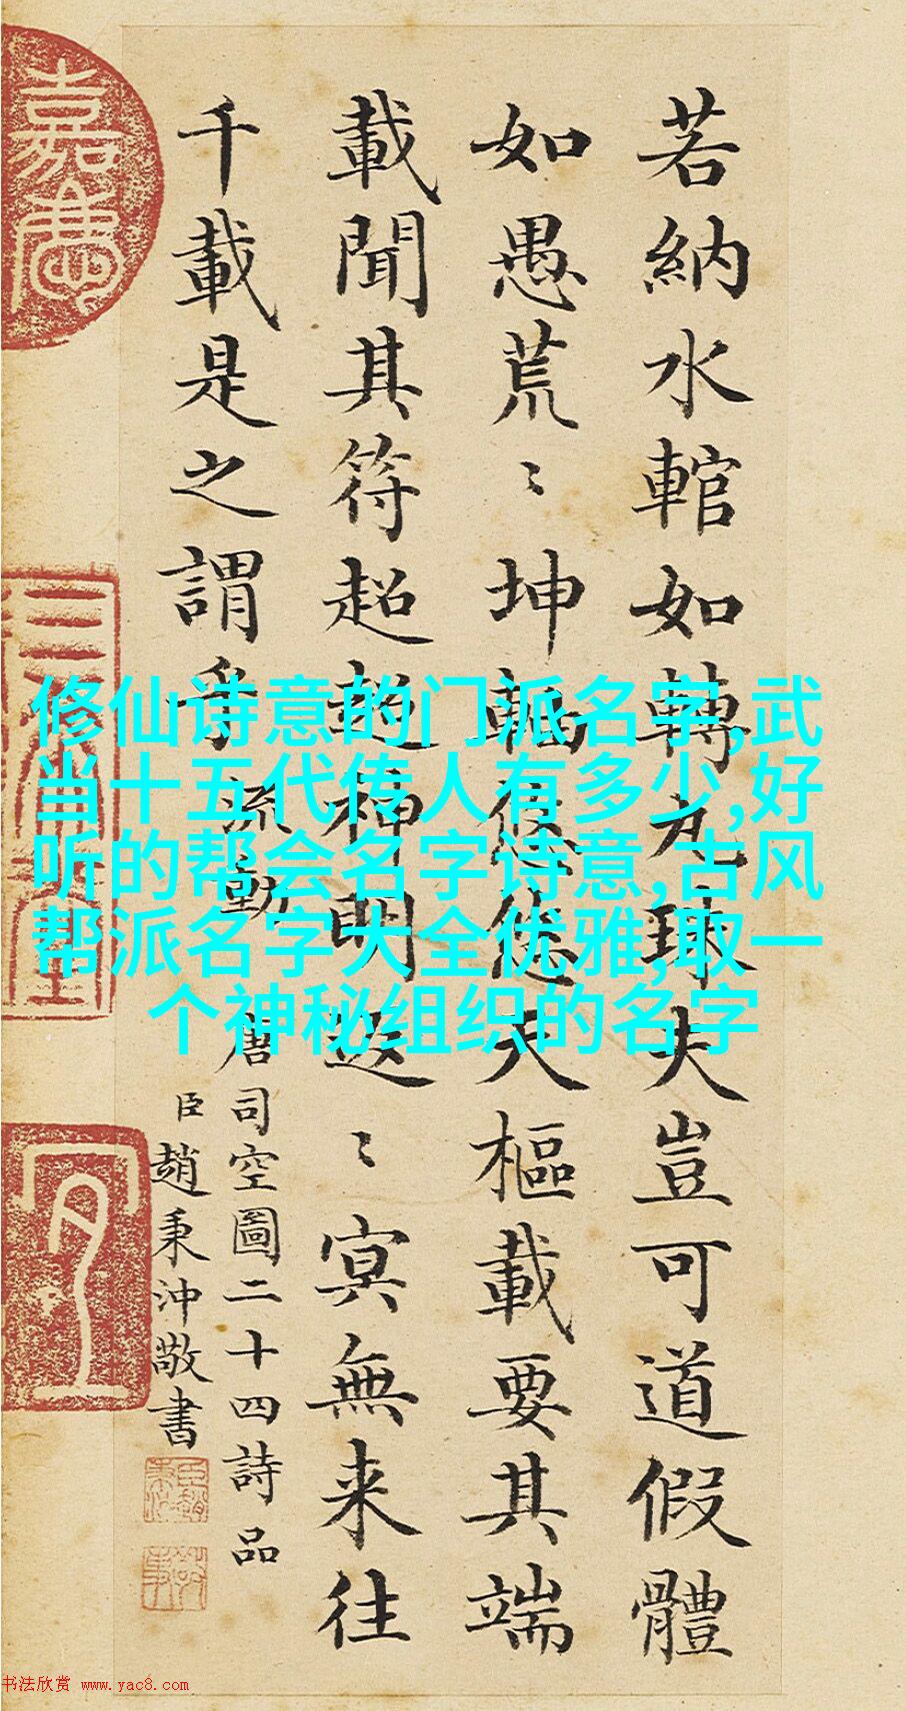 若納水輨如轉丸珠夫豈可道假體
如愚荒〻坤軸悠悠天樞載要其端
載聞其符超超神明返〻冥無来往
千載是之謂乎 流動
唐司空圖二十四詩品
臣趙秉沖敬書
嘉慶
修仙诗意的门派名字,武
当十五代传人有多少,好
听的帮会名字诗意,古风
帮派名字大全优雅,取一
个神秘组织的名字
书法欣赏 www.yac8.com